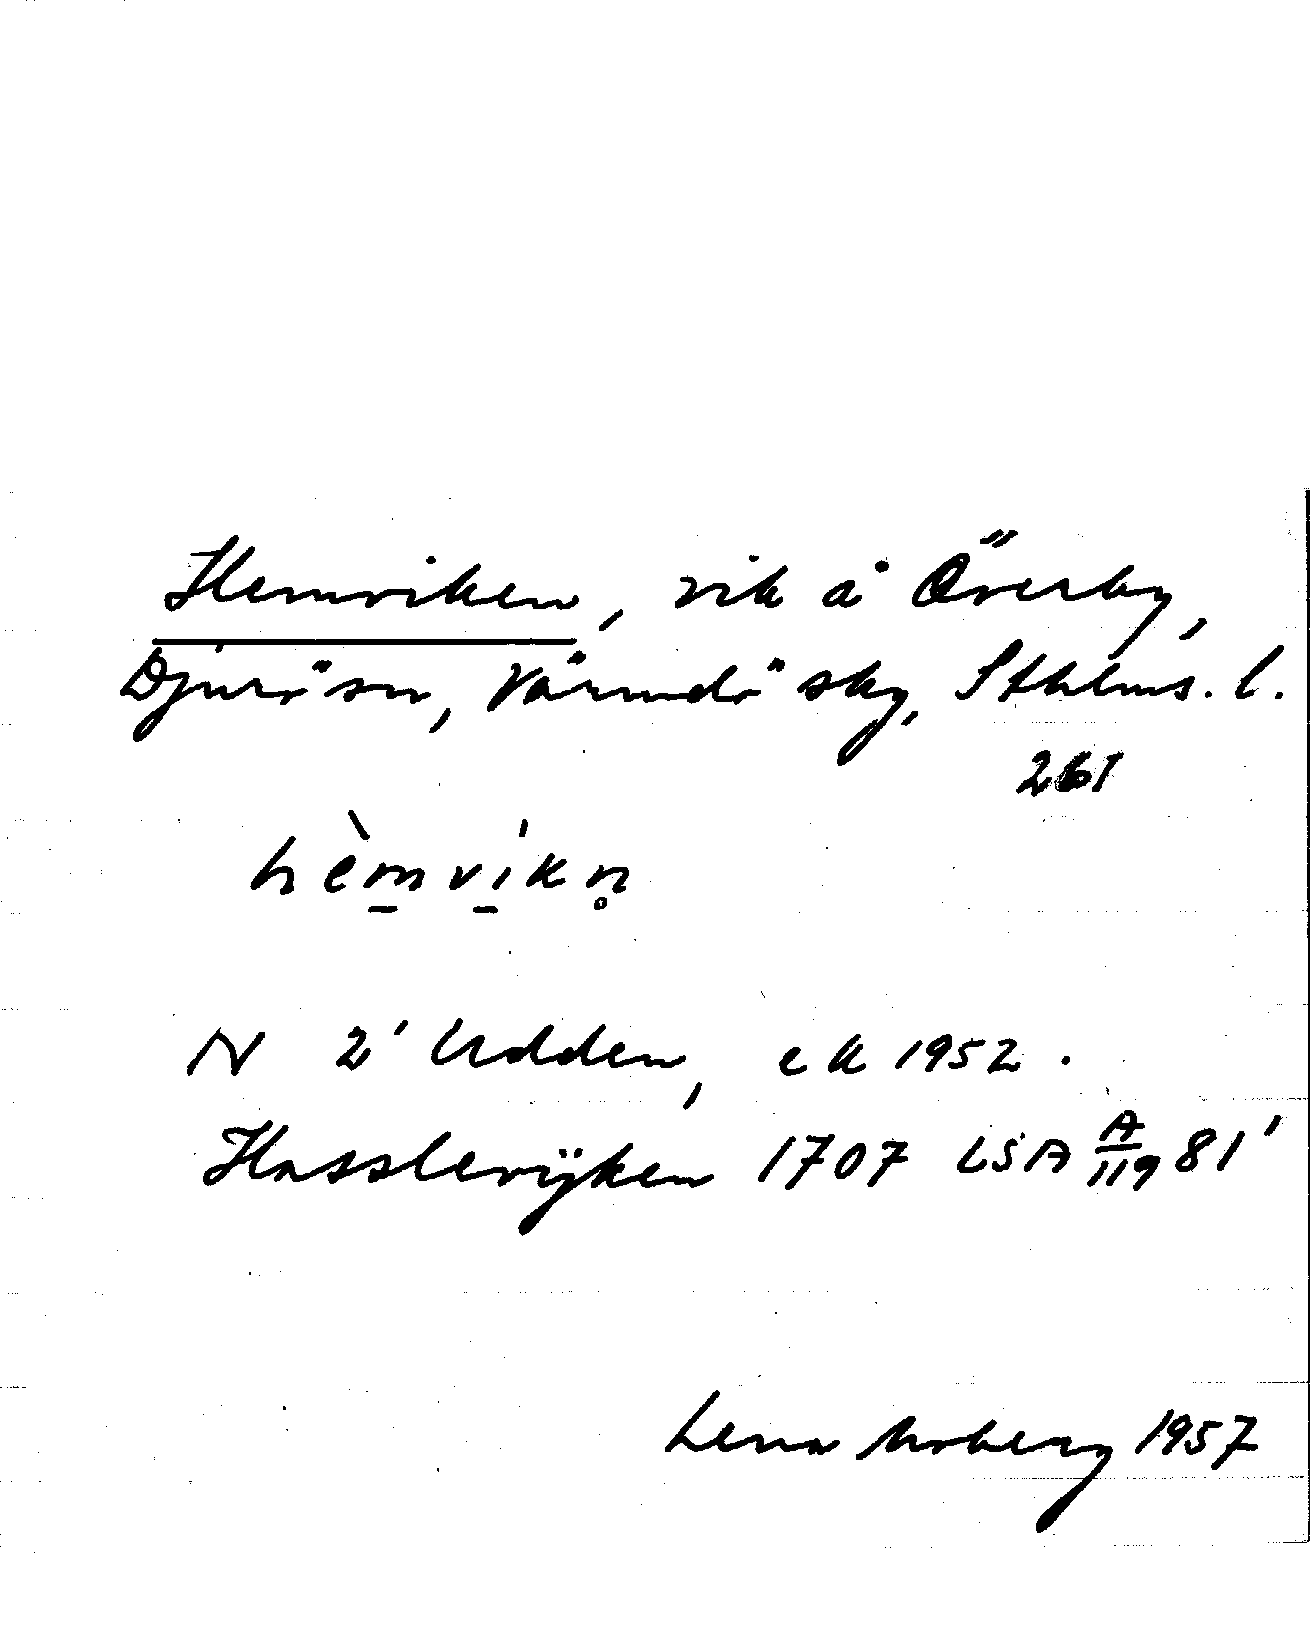 Hemviken, vik å Överby,
Djurö sn, Värmdö sky, Sthlms. l.
261
hèm̲ví̲kn̥
N 2' Udden, ek 1952.
Hasslevÿken 1707 LSA A/119 81'
Lena Moberg 1957